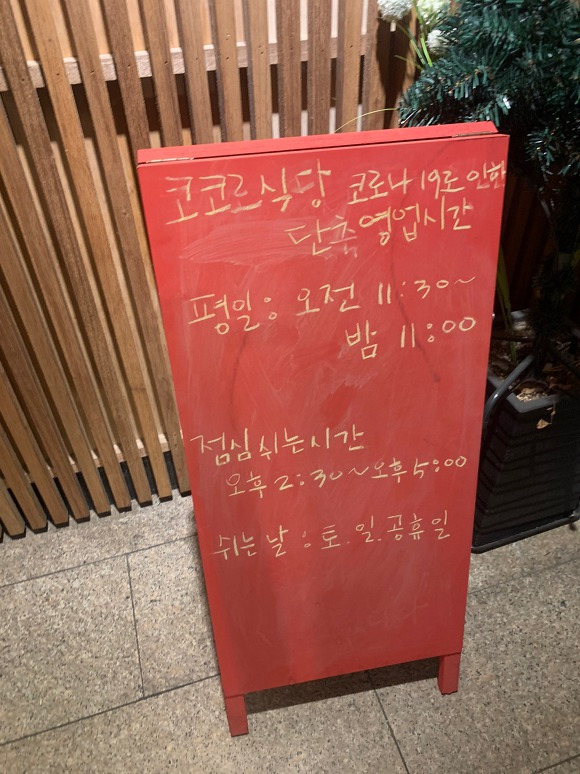 코코로식당 코로나19로 인한
단축영업시간
평일: 오전 11:30~
밤 11:00
점심 쉬는시간
오후 2:30~오후 5:00
쉬는날: 토.일.공휴일